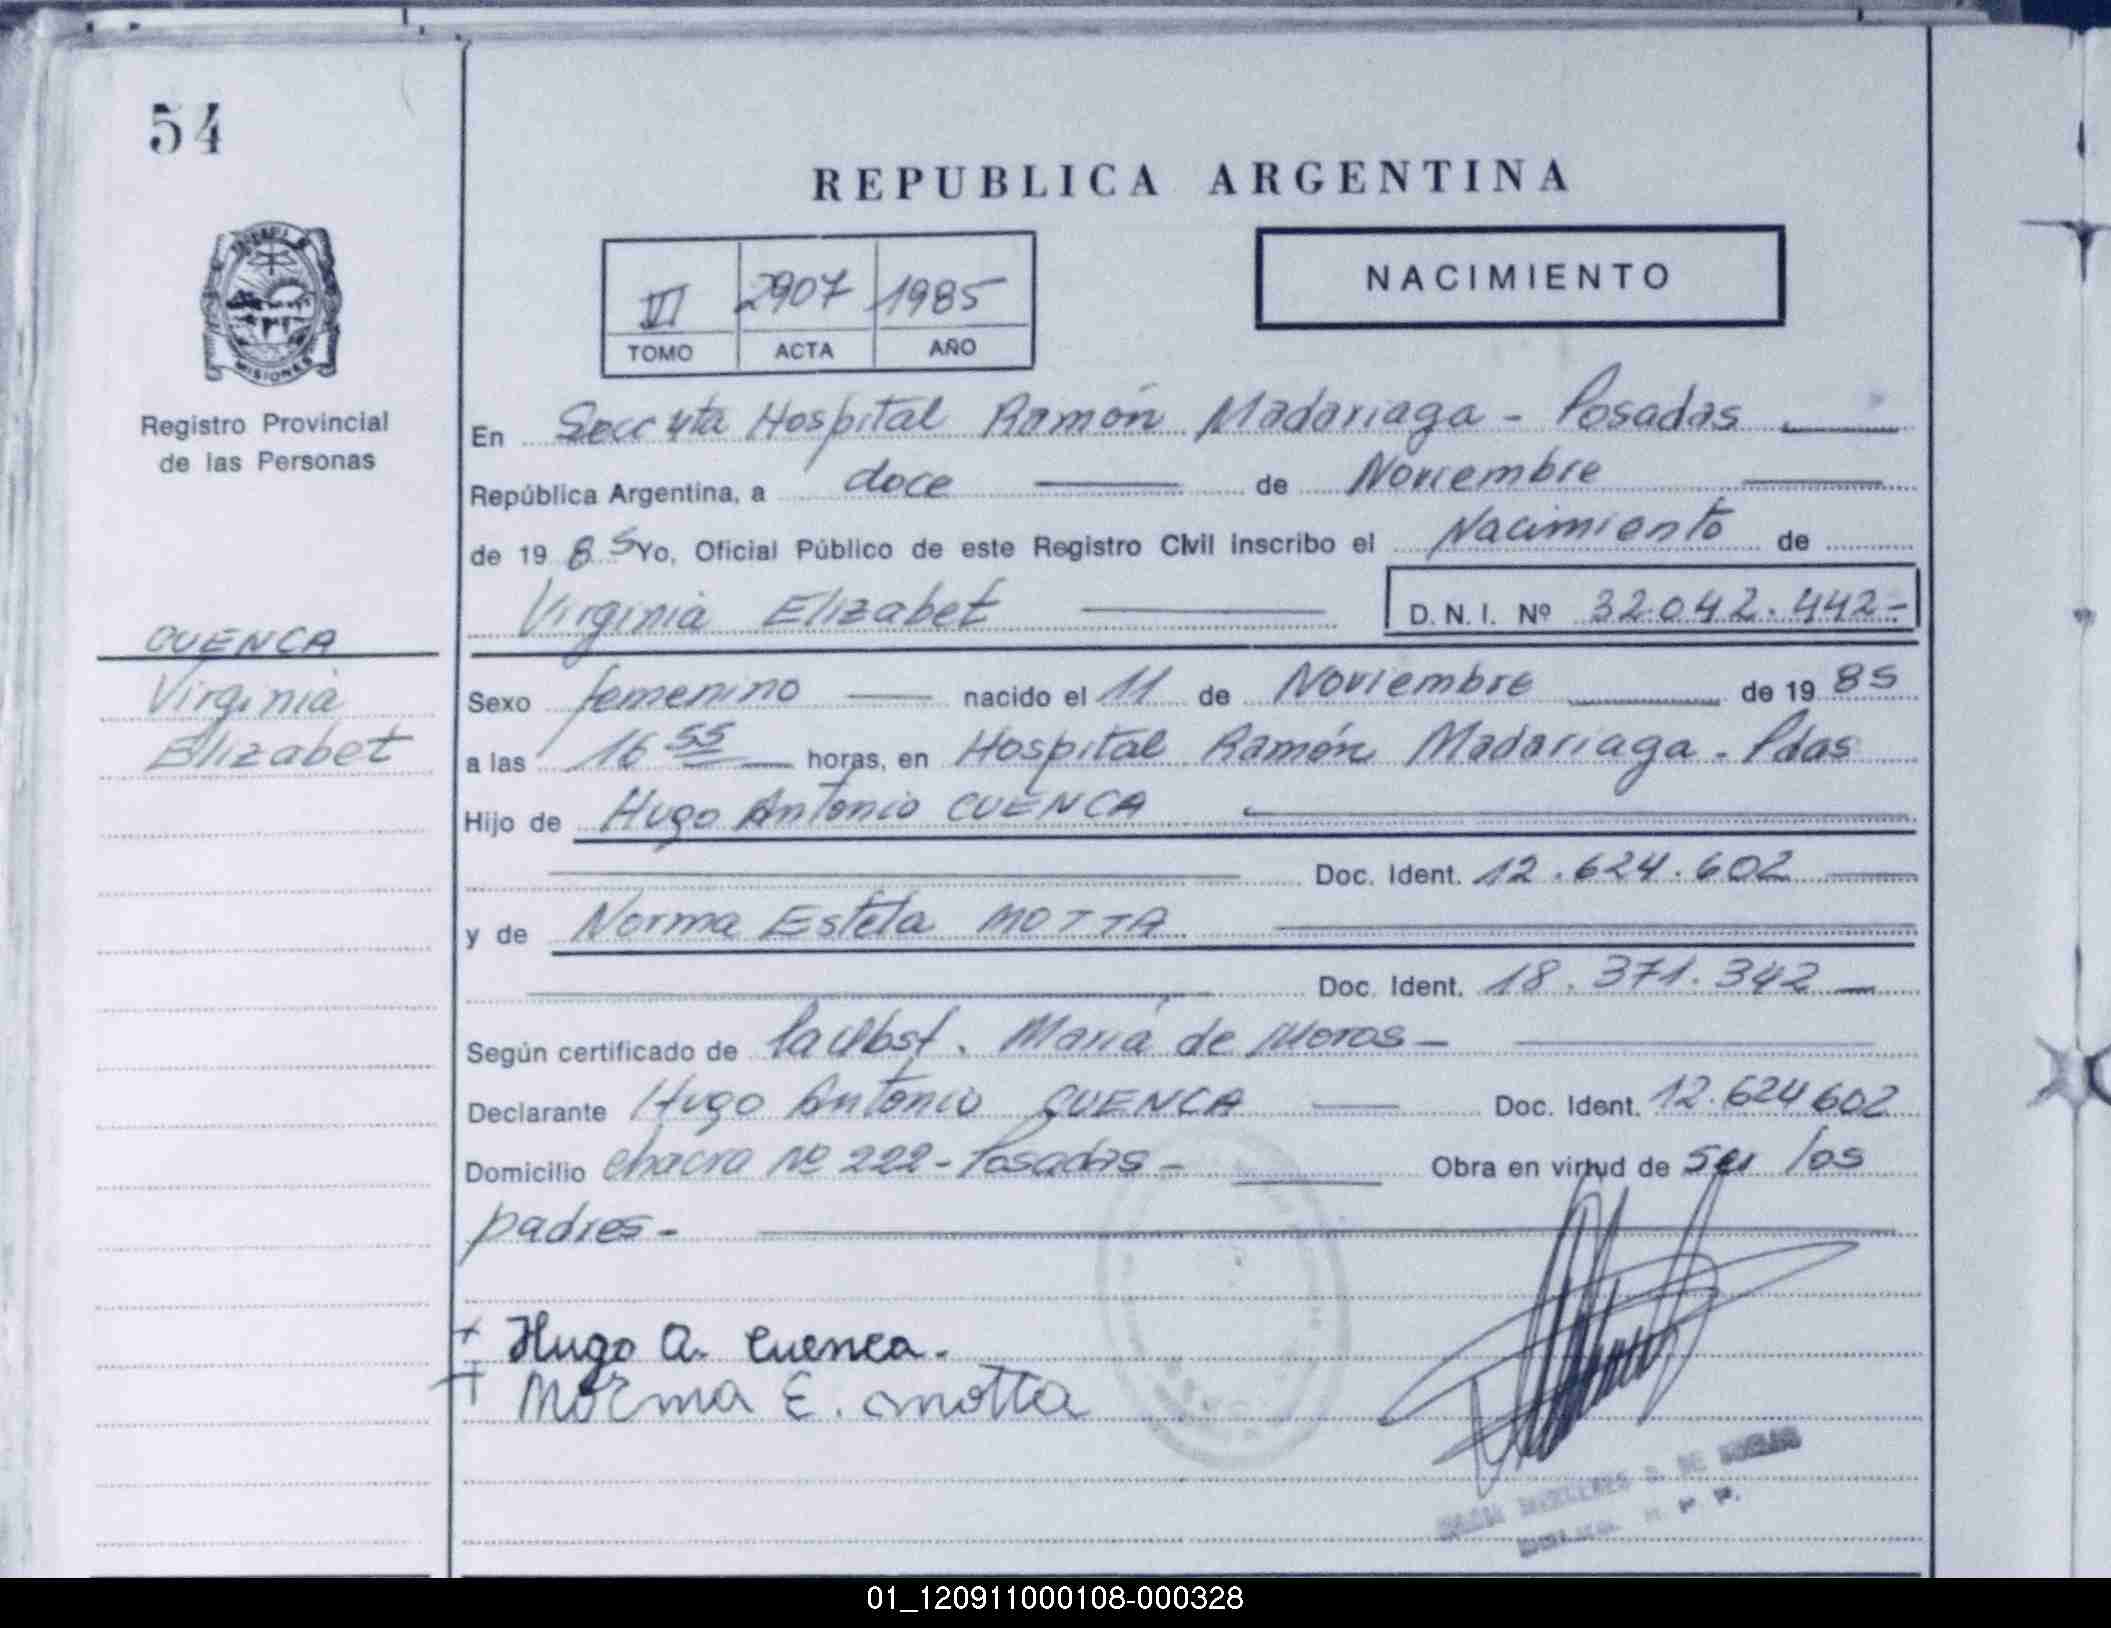 54
REPUBLICA ARGENTINA
NACIMIENTO
III 2907 1985
TOMO ACTA AÑO
MISIONES
Registro Provincial
de las Personas
En Secc 4ta Hospital Ramón Madariaga - Posadas
República Argentina, a doce de Noviembre
de 19 85 Yo, Oficial Público de este Registro Civil inscribo el Nacimiento de
Virginia Elizabet D. N. I. Nº 32.042.442-
CUENCA
Virginia
Elizabet
Sexo femenino nacido el 11 de Noviembre de 19 85
a las 16 55 horas, en Hospital Ramón Madariaga - Pdas
Hijo de Hugo Antonio CUENCA
Doc. Ident. 12.624.602
y de Norma Estela MOTTA
Doc. Ident. 18.371.342
Según certificado de María de Moros -
Declarante Hugo Antonio CUENCA Doc. Ident. 12.624602
Domicilio chacra Nº 222 - Posadas - Obra en virtud de ser los
padres -
+ Hugo A. Cuenca.
+ Norma E. Motta
01_120911000108-000328